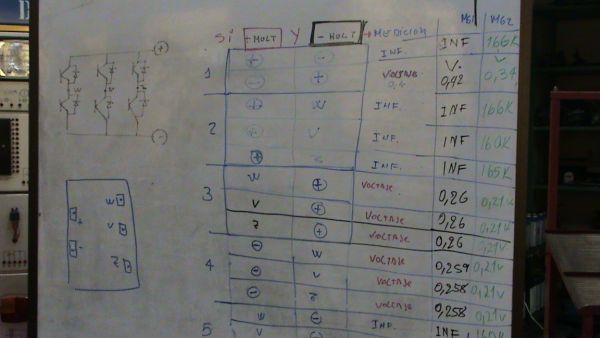 Si + MULT Y - MULT → MEDICION MG1 MG2
+ - INF. INF 166K
1 - + VOLTAJE 0,42 0,34
+ W INF. INF 166K
2 V INF. INF 160K
+ INF. INF 165K
W + VOLTAJE 0,26 0,21V
3 V + VOLTAJE 0,26 0,21V
Z + VOLTAJE 0,26 0,21V
- W VOLTAJE 0,259 0,21V
4 - V VOLTAJE 0,258 0,21V
- Z VOLTAJE 0,258 0,21V
W - INF. INF
5 V -
+
-
W
+ V
- Z